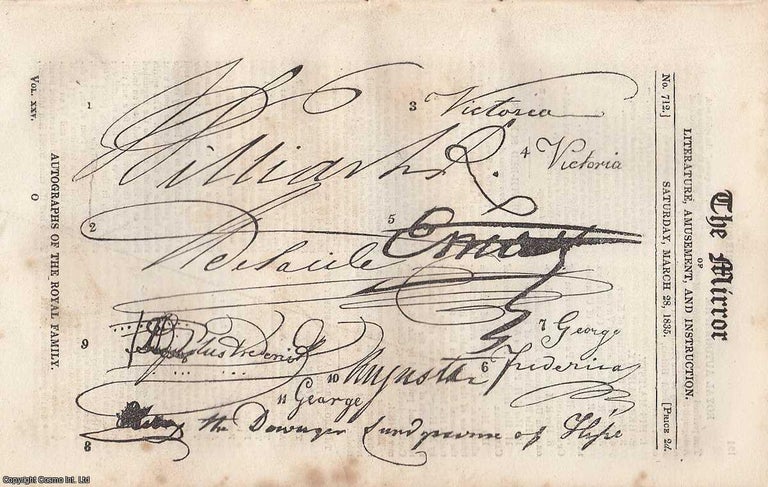 The Mirror
OF
LITERATURE, AMUSEMENT, AND INSTRUCTION.
No. 712.] SATURDAY, MARCH 28, 1835. [PRICE 2d.
1 William R.
2 Adelaide
3 Victoria
4 Victoria
5 Ernest
6 Frederica
7 George
8 the Dowager Landgravine of Hesse
9 Augustus Frederick
10 Augusta
11 George
AUTOGRAPHS OF THE ROYAL FAMILY.
VOL. XXV. O
Copyright Cosmo Int. Ltd